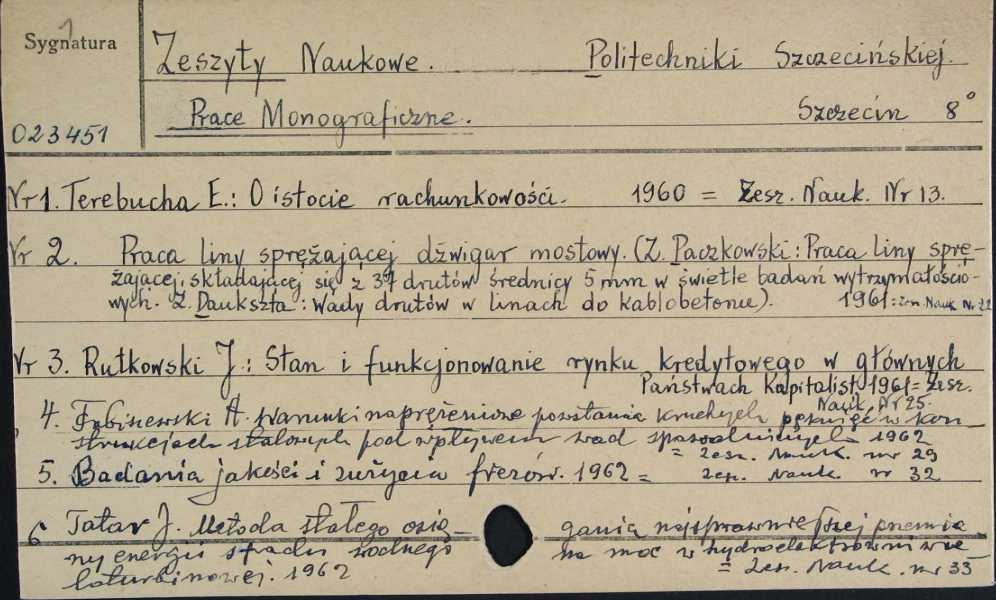 Sygnatura
Zeszyty Naukowe. Politechniki Szczecińskiej.
Prace Monograficzne. Szczecin 8°
023451
Nr 1. Terebucha E.: O istocie rachunkowości. 1960 = Zesz. Nauk. Nr 13.
Nr 2. Praca liny sprężającej dźwigar mostowy. (Z. Paczkowski: Praca liny sprę-
żającej, składającej się z 37 drutów średnicy 5 mm w świetle badań wytrzymałościo-
wych. Z. Daukszta: Wady drutów w linach do kablobetonu). 1961 = zesz. Nauk. Nr 22
Nr 3. Rutkowski J.: Stan i funkcjonowanie rynku kredytowego w głównych
Państwach Kapitalist. 1961 = Zesz.
Nauk. Nr 25.
4. Fabiszewski A. Warunki naprężeniowe powstania kruchych pęknięć w kon
strukcjach stalowych pod wpływem wad spawalniczych 1962
= zesz. Nauk. nr 29
5. Badania jakości i zużycia frezów. 1962 = zesz. Nauk nr 32
6 Tatar J. Metoda stałego osią- gania najsprawniejszej przemia
ny energii spadu wodnego na moc w hydroelektrowni wie
loturbinowej. 1962 = Zesz. Nauk. nr 33